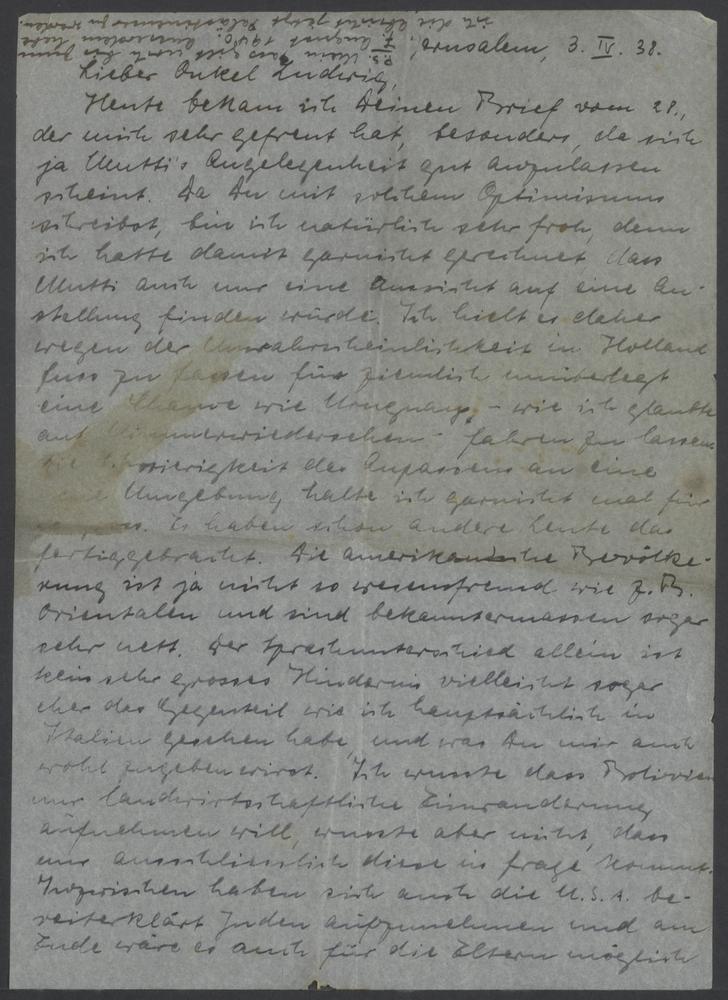 Jerusalem, 3. IV. 38.
Lieber Onkel Ludwig,
Heute bekam ich Deinen Brief vom 28.,
der mich sehr gefreut hat, besonders, da sich
ja Mutti's Angelegenheit gut anzulassen
scheint. Da Du mit solchem Optimismus
schreibst, bin ich natürlich sehr froh, denn
ich hatte damit garnicht gerechnet, dass
Mutti auch nur eine Aussicht auf eine An-
stellung finden würde. Ich hielt es daher
wegen der Unwahrscheinlichkeit in Holland
fuss zu fassen für ziemlich unüberlegt
eine Chance wie Uruguay, - wie ich glaubte
auf Nimmerwiedersehen - fahren zu lassen.
die Schwierigkeit des Anpassens an eine
Umgebung halte ich garnicht mal für
Es haben schon andere Leute das
fertiggebracht. Die amerikanische Bevölke-
rung ist ja nicht so wesensfremd wie z. B.
Orientalen und sind bekanntermassen sogar
sehr nett. Der Sprachunterschied allein ist
kein sehr grosses Hindernis vielleicht sogar
eher das Gegenteil wie ich hauptsächlich in
Italien gesehen habe, und was Du mir auch
wohl zugeben wirst. Ich wusste dass Bolivien
nur landwirtschaftliche Einwanderung
aufnehmen will, wusste aber nicht, dass
nur ausschliesslich diese in frage kommt.
Inzwischen haben sich auch die U.S.A. be-
reiterklärt Juden aufzunehmen und am
Ende wäre es auch für die Eltern möglich